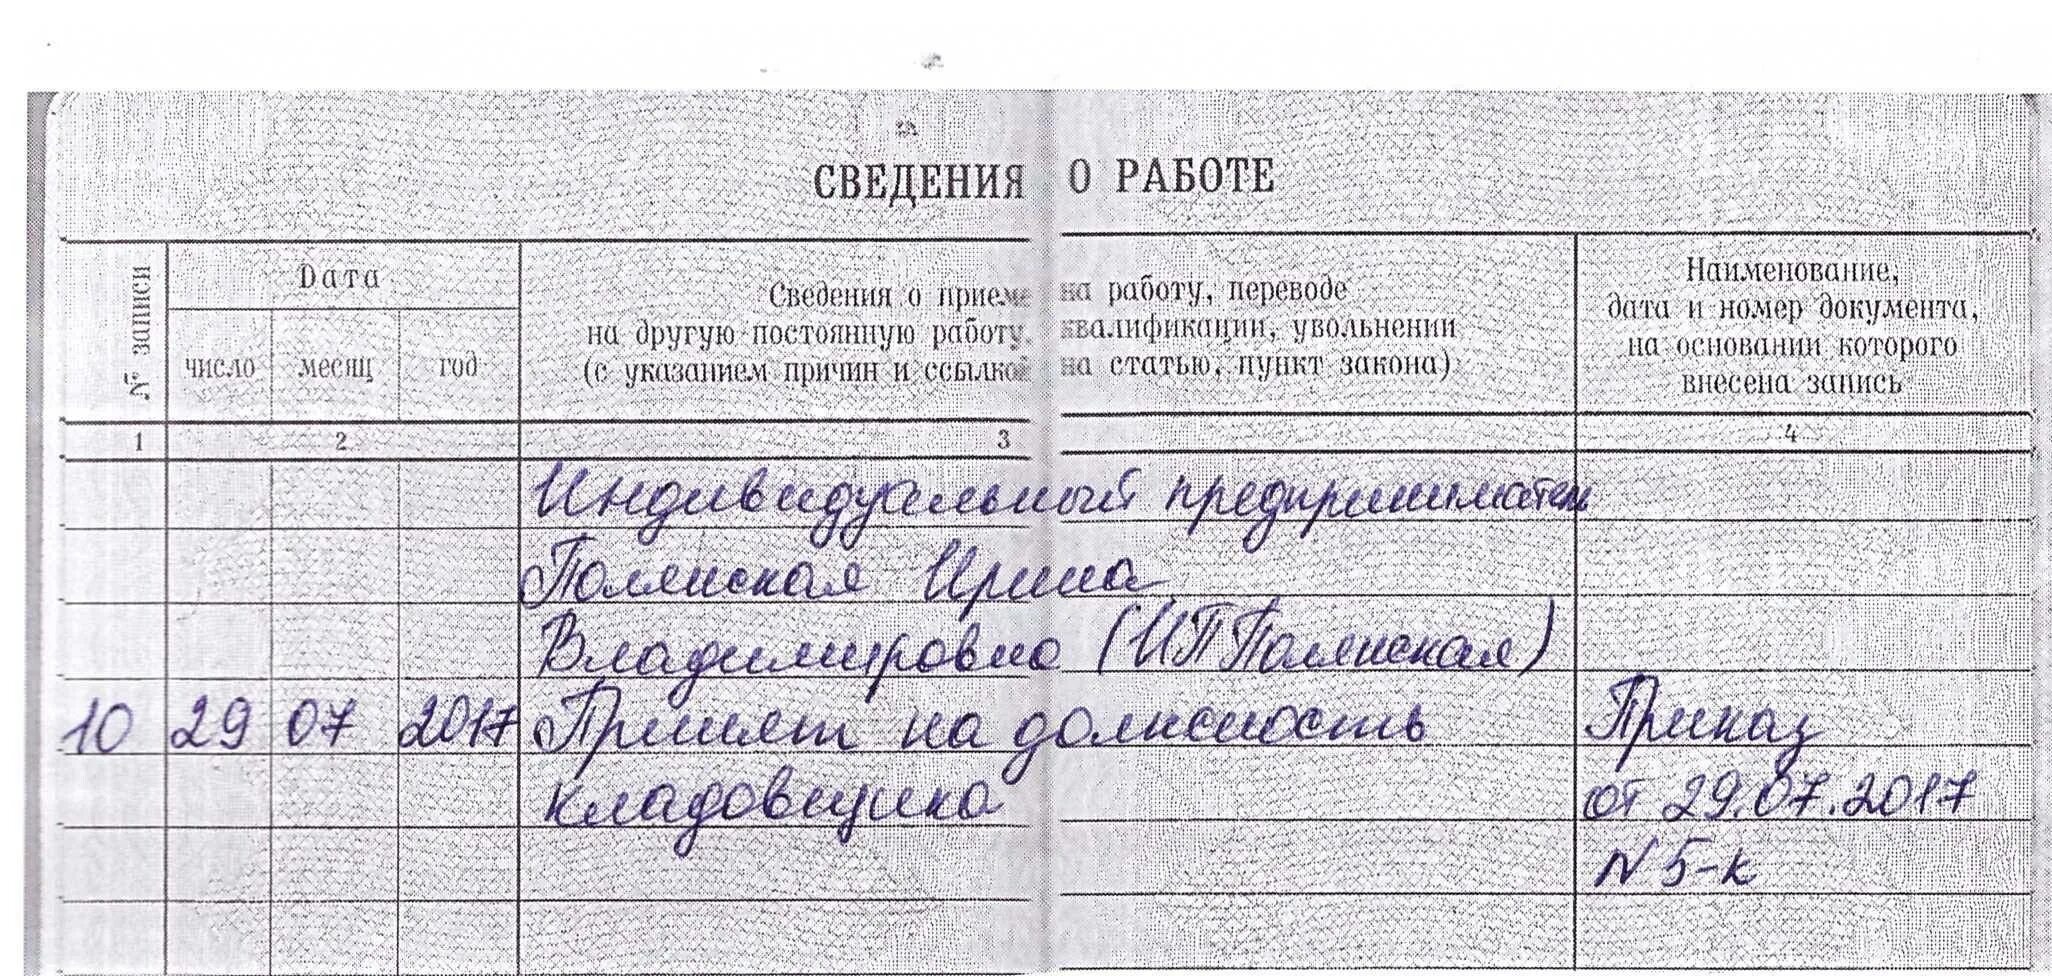 СВЕДЕНИЯ О РАБОТЕ
№ записи
Дата
число месяц год
Сведения о приеме на работу, переводе
на другую постоянную работу, квалификации, увольнении
(с указанием причин и ссылкой на статью, пункт закона)
Наименование,
дата и номер документа,
на основании которого
внесена запись
1 2 3 4
Индивидуальный предприниматель
Полянская Ирина
Владимировна (ИП Полянская)
10 29 07 2017 Принят на должность Приказ
кладовщика от 29.07.2017
N 5-к